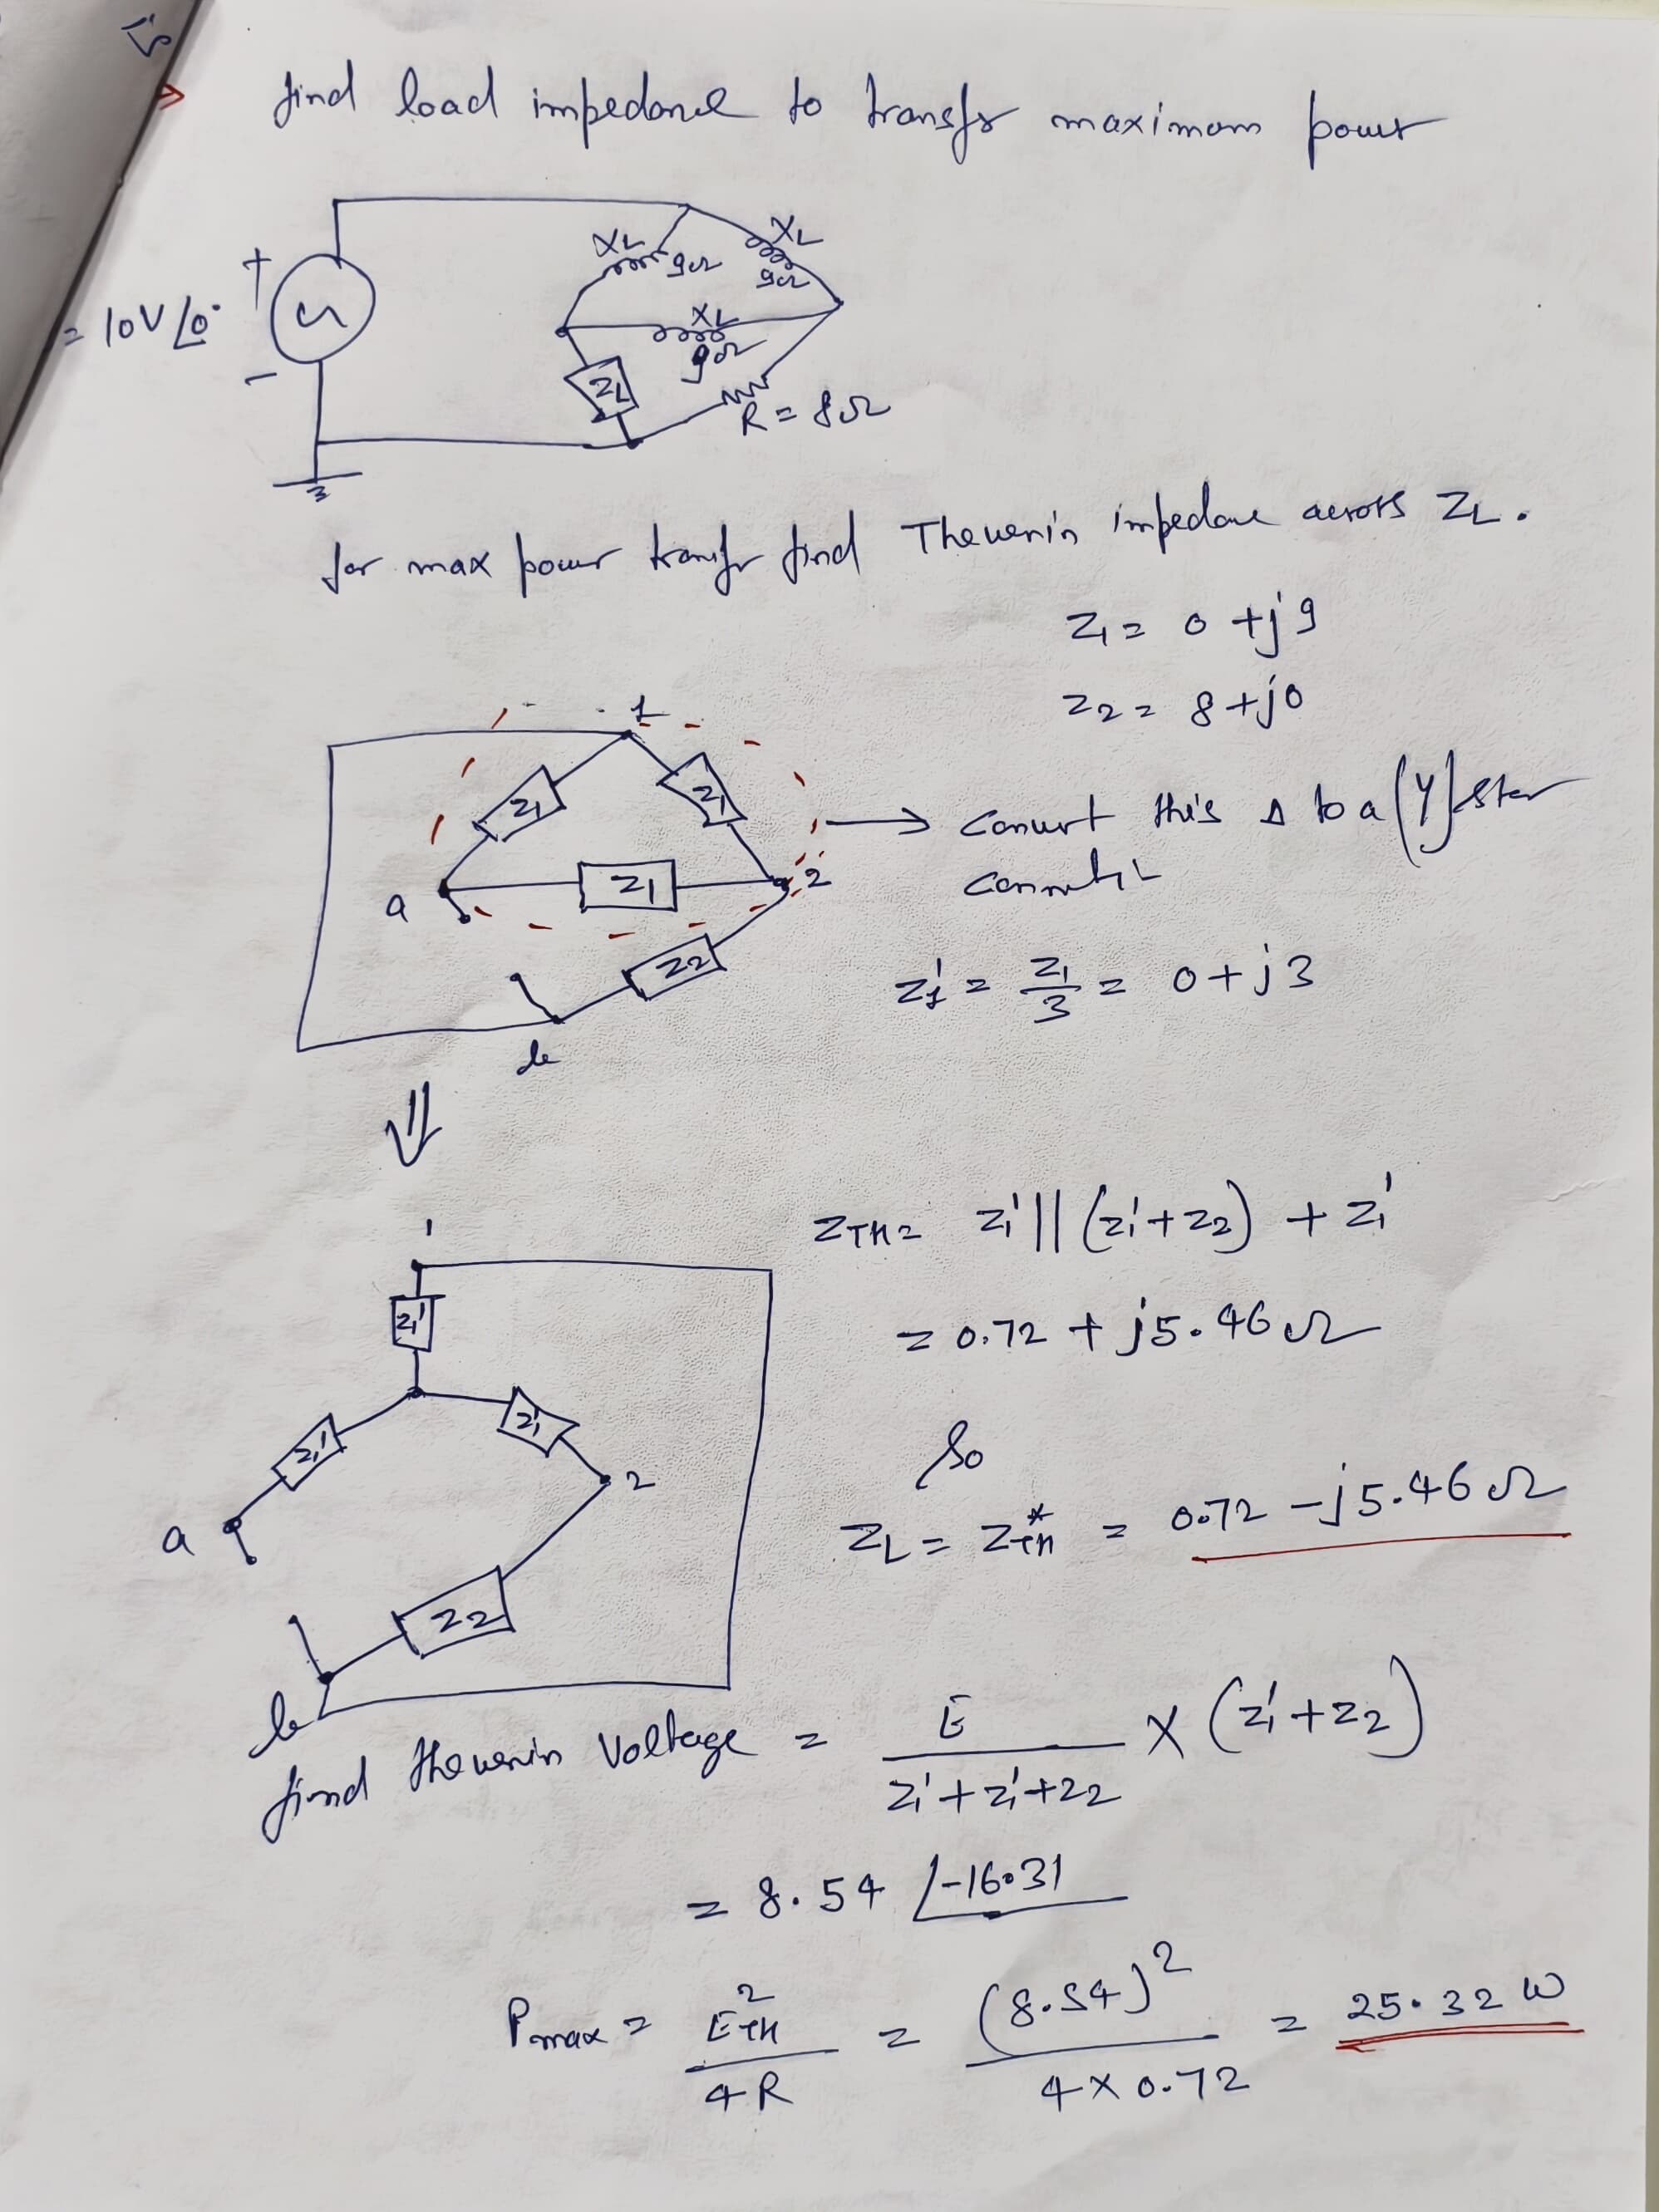 find load impedance to transfr maximum power
XL
9Ω
XL
9Ω
+
= 10V ∠0°
XL
9Ω
−
ZL
R = 8Ω
for max power transfr find Thevenin impedane across ZL.
Z1 = 0 + j9
Z2 = 8 + j0
1
Z1
Z1
→ Convert this Δ to a (Y) star
a
Z1
2
Z2
Z1' = Z1/3 = 0 + j3
b
⇓
1
ZTH = Z1' || (Z1' + Z2) + Z1'
Z1'
= 0.72 + j5.46 Ω
Z1'
Z1'
So
2
a
ZL = ZTH* = 0.72 − j5.46 Ω
Z2
b
find thevenin Voltage = E / (Z1' + Z1' + Z2) × (Z1' + Z2)
= 8.54 ∠-16.31
Pmax = ETH² / 4R = (8.54)² / 4 × 0.72 = 25.32 W